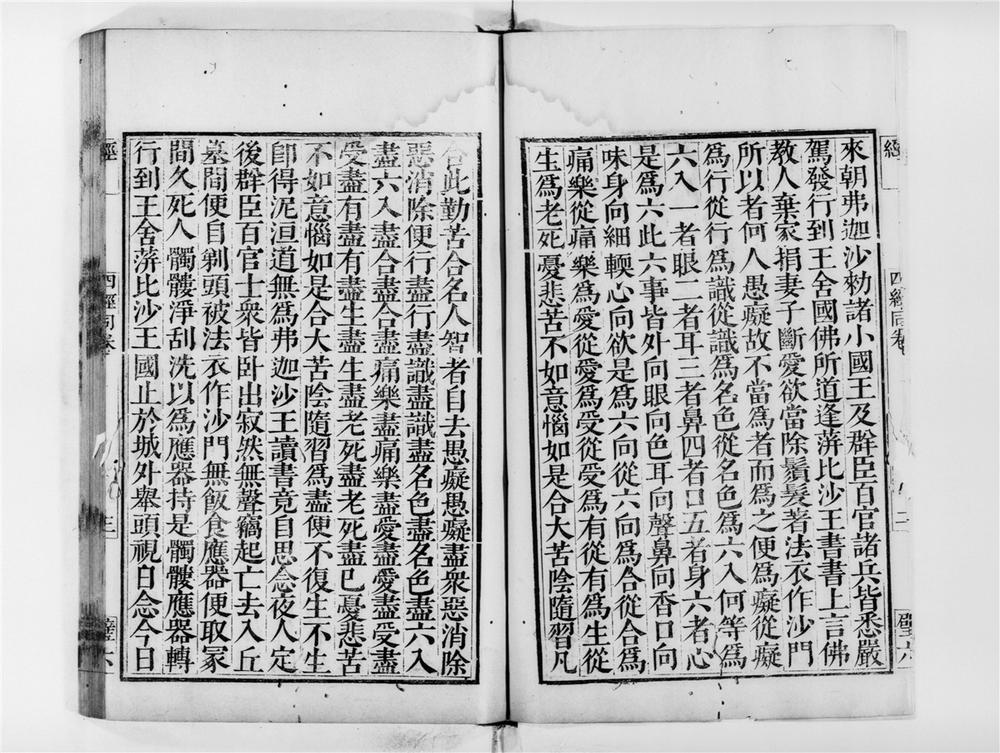 來朝弗迦沙勑諸小國王及群臣百官諸兵皆悉嚴
駕發行到王舍國佛所道逢蓱比沙王書書上言佛
教人棄家捐妻子斷愛欲當除鬚髮著法衣作沙門
所以者何人愚癡故不當為者而為之便為癡從癡
為行從行為識從識為名色從名色為六入何等為
六入一者眼二者耳三者鼻四者口五者身六者心
是為六此六事皆外向眼向色耳向聲鼻向香口向
味身向細輭心向欲是為六向從六向為合從合為
痛樂從痛樂為愛從愛為受從受為有從有為生從
生為老死憂悲苦不如意惱如是合大苦陰隨習凡
合此勤苦合名人智者自去愚癡愚癡盡衆惡消除
惡消除便行盡行盡識盡識盡名色盡名色盡六入
盡六入盡合盡合盡痛樂盡痛樂盡愛盡愛盡受盡
受盡有盡有盡生盡生盡老死盡老死盡已憂悲苦
不如意惱如是合大苦陰隨習為盡便不復生不生
卽得泥洹道無為弗迦沙王讀書竟自思念夜人定
後群臣百官士衆皆卧出寂然無聲竊起亡去入丘
墓間便自剃頭被法衣作沙門無飯食應器便取冢
間久死人髑髏淨刮洗以為應器持是髑髏應器轉
行到王舍蓱比沙王國止於城外舉頭視日念今日
經
四經同卷
三
璧六
經
四經同卷
二
璧六